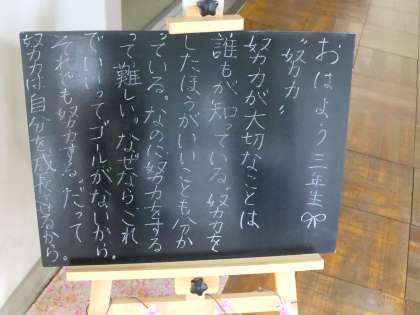 おはよう三年生
"努力"
努力が大切なことは
誰もが知っている。努力を
したほうがいいことも分か
っている。なのに努力をする
って難しい。なぜなら、これ
でいいってゴールがないから。
それでも努力する。だって
努力は自分を成長させるから。